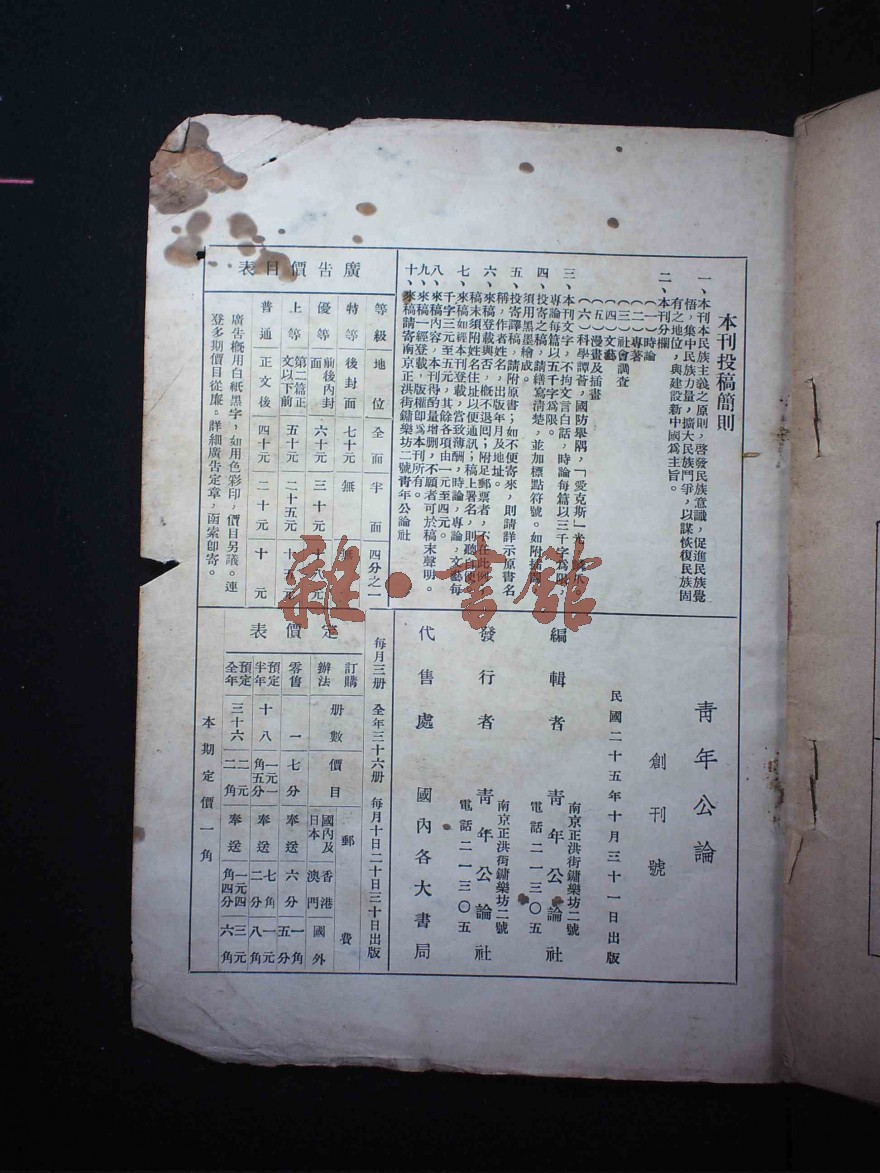 本刊投稿簡則
一、本刊本民族主義之原則，啓發民族意識，促進民族覺
悟，集中民族力量，擴大民族鬥爭，以謀恢復民族固
有之地位，與建設新中國爲主旨。
二、本刊分欄
（一）時論
（二）專著
（三）社會調查
（四）文藝
（五）漫畫及插畫
（六）科學譚薈，國防舉隅，「愛克斯」光
三、本刊文字，不拘文言白話，時論每篇以三千字爲限，
專論每篇以五千字爲限。
四、投寄之稿，請繕寫清楚，並加標點符號。如附插圖，
須用墨繪成。
五、投寄譯稿，請附原書；如不便寄來，則請詳示原書名
稱，作者姓名，出版年月及地址。
六、來稿登載與否，概不退囘；附足郵票者，不在此例，
稿末須附姓名住址以便通訊；稿上署名，則聽自便
七、來稿如經本刊登載，當致薄酬，時論，專論，文藝每
千字三元至五元，其餘各項由一元至四元。
八、來稿內容，本刊得酌量增删，不願者可於稿末聲明。
九、來稿一經登載，版權即爲本刊所有。
十、來稿請寄南京正洪街鏞樂坊二號靑年公論社
廣告價目表
等級 地位 全面 半面 四分之一
特等 後封面 七十元 無 無
優等 前後內封面 六十元 三十元 十八元
上等 第二篇正文以下前 五十元 二十五元 十五元
普通 正文後 四十元 二十元 十元
廣告概用白紙黑字，如用色彩印，價目另議。連
登多期價目從廉。詳細廣告定章，函索即寄。
靑年公論
創刊號
民國二十五年十月三十一日出版
編輯者 靑年公論社
南京正洪街鏞樂坊二號
電話二一三〇五
發行者 靑年公論社
南京正洪街鏞樂坊二號
電話二一三〇五
代售處 國內各大書局
定價表
每月三册 全年三十六册 每月十日二十日三十日出版
訂購辦法 册數 價目 郵費
國內及日本 香港澳門 國外
零售 一 七分 奉送 六分 一角五分
預定半年 十八 一元一角五分 奉送 七角二分 一元八角
預定全年 三十六 二元二角 奉送 一元四角四分 三元六角
本期定價一角
雜·書館